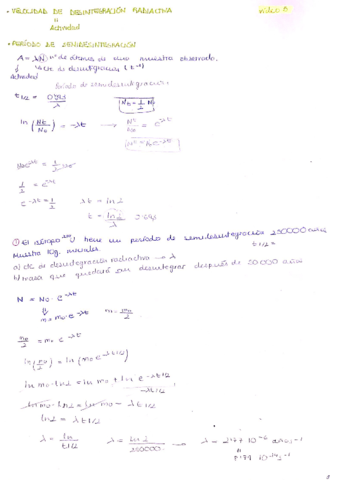 • VELOCIDAD DE DESINTEGRACIÓN RADIACTIVA
Actividad
• PERÍODO DE SEMIDESINTEGRACIÓN
A = λN nº de átomos de una muestra observada.
Actividad
cte de desintegración (t⁻¹)
Período de semidesintegración
t1/2 = 0'693 / λ
Nt = 1/2 N
ln (Nt/No) = -λt → Nt/No = e^-λt
Nt = No e^-λt
e^-λt = 1/2 λt = ln 2
t = ln 2 / λ
① El isótopo U tiene un período de semidesintegración 250000 años
Muestra 10g. iniciales
t1/2 =
a) cte de desintegración radiactiva → λ
b) masa que quedará sin desintegrar después de 50.000 años
N = No · e^-λt
m = mo · e^-λt m = mo/2
mo/2 = mo e^-λt
ln (mo/2) = ln (mo e^-λt1/2)
ln mo - ln 2 = ln mo + ln e^-λt1/2
-λt1/2
ln mo - ln 2 = ln mo - λt1/2
ln 2 = λt1/2
λ = ln / t1/2 λ = ln 2 / 250000 → λ = 2'77 · 10⁻⁶ años⁻¹